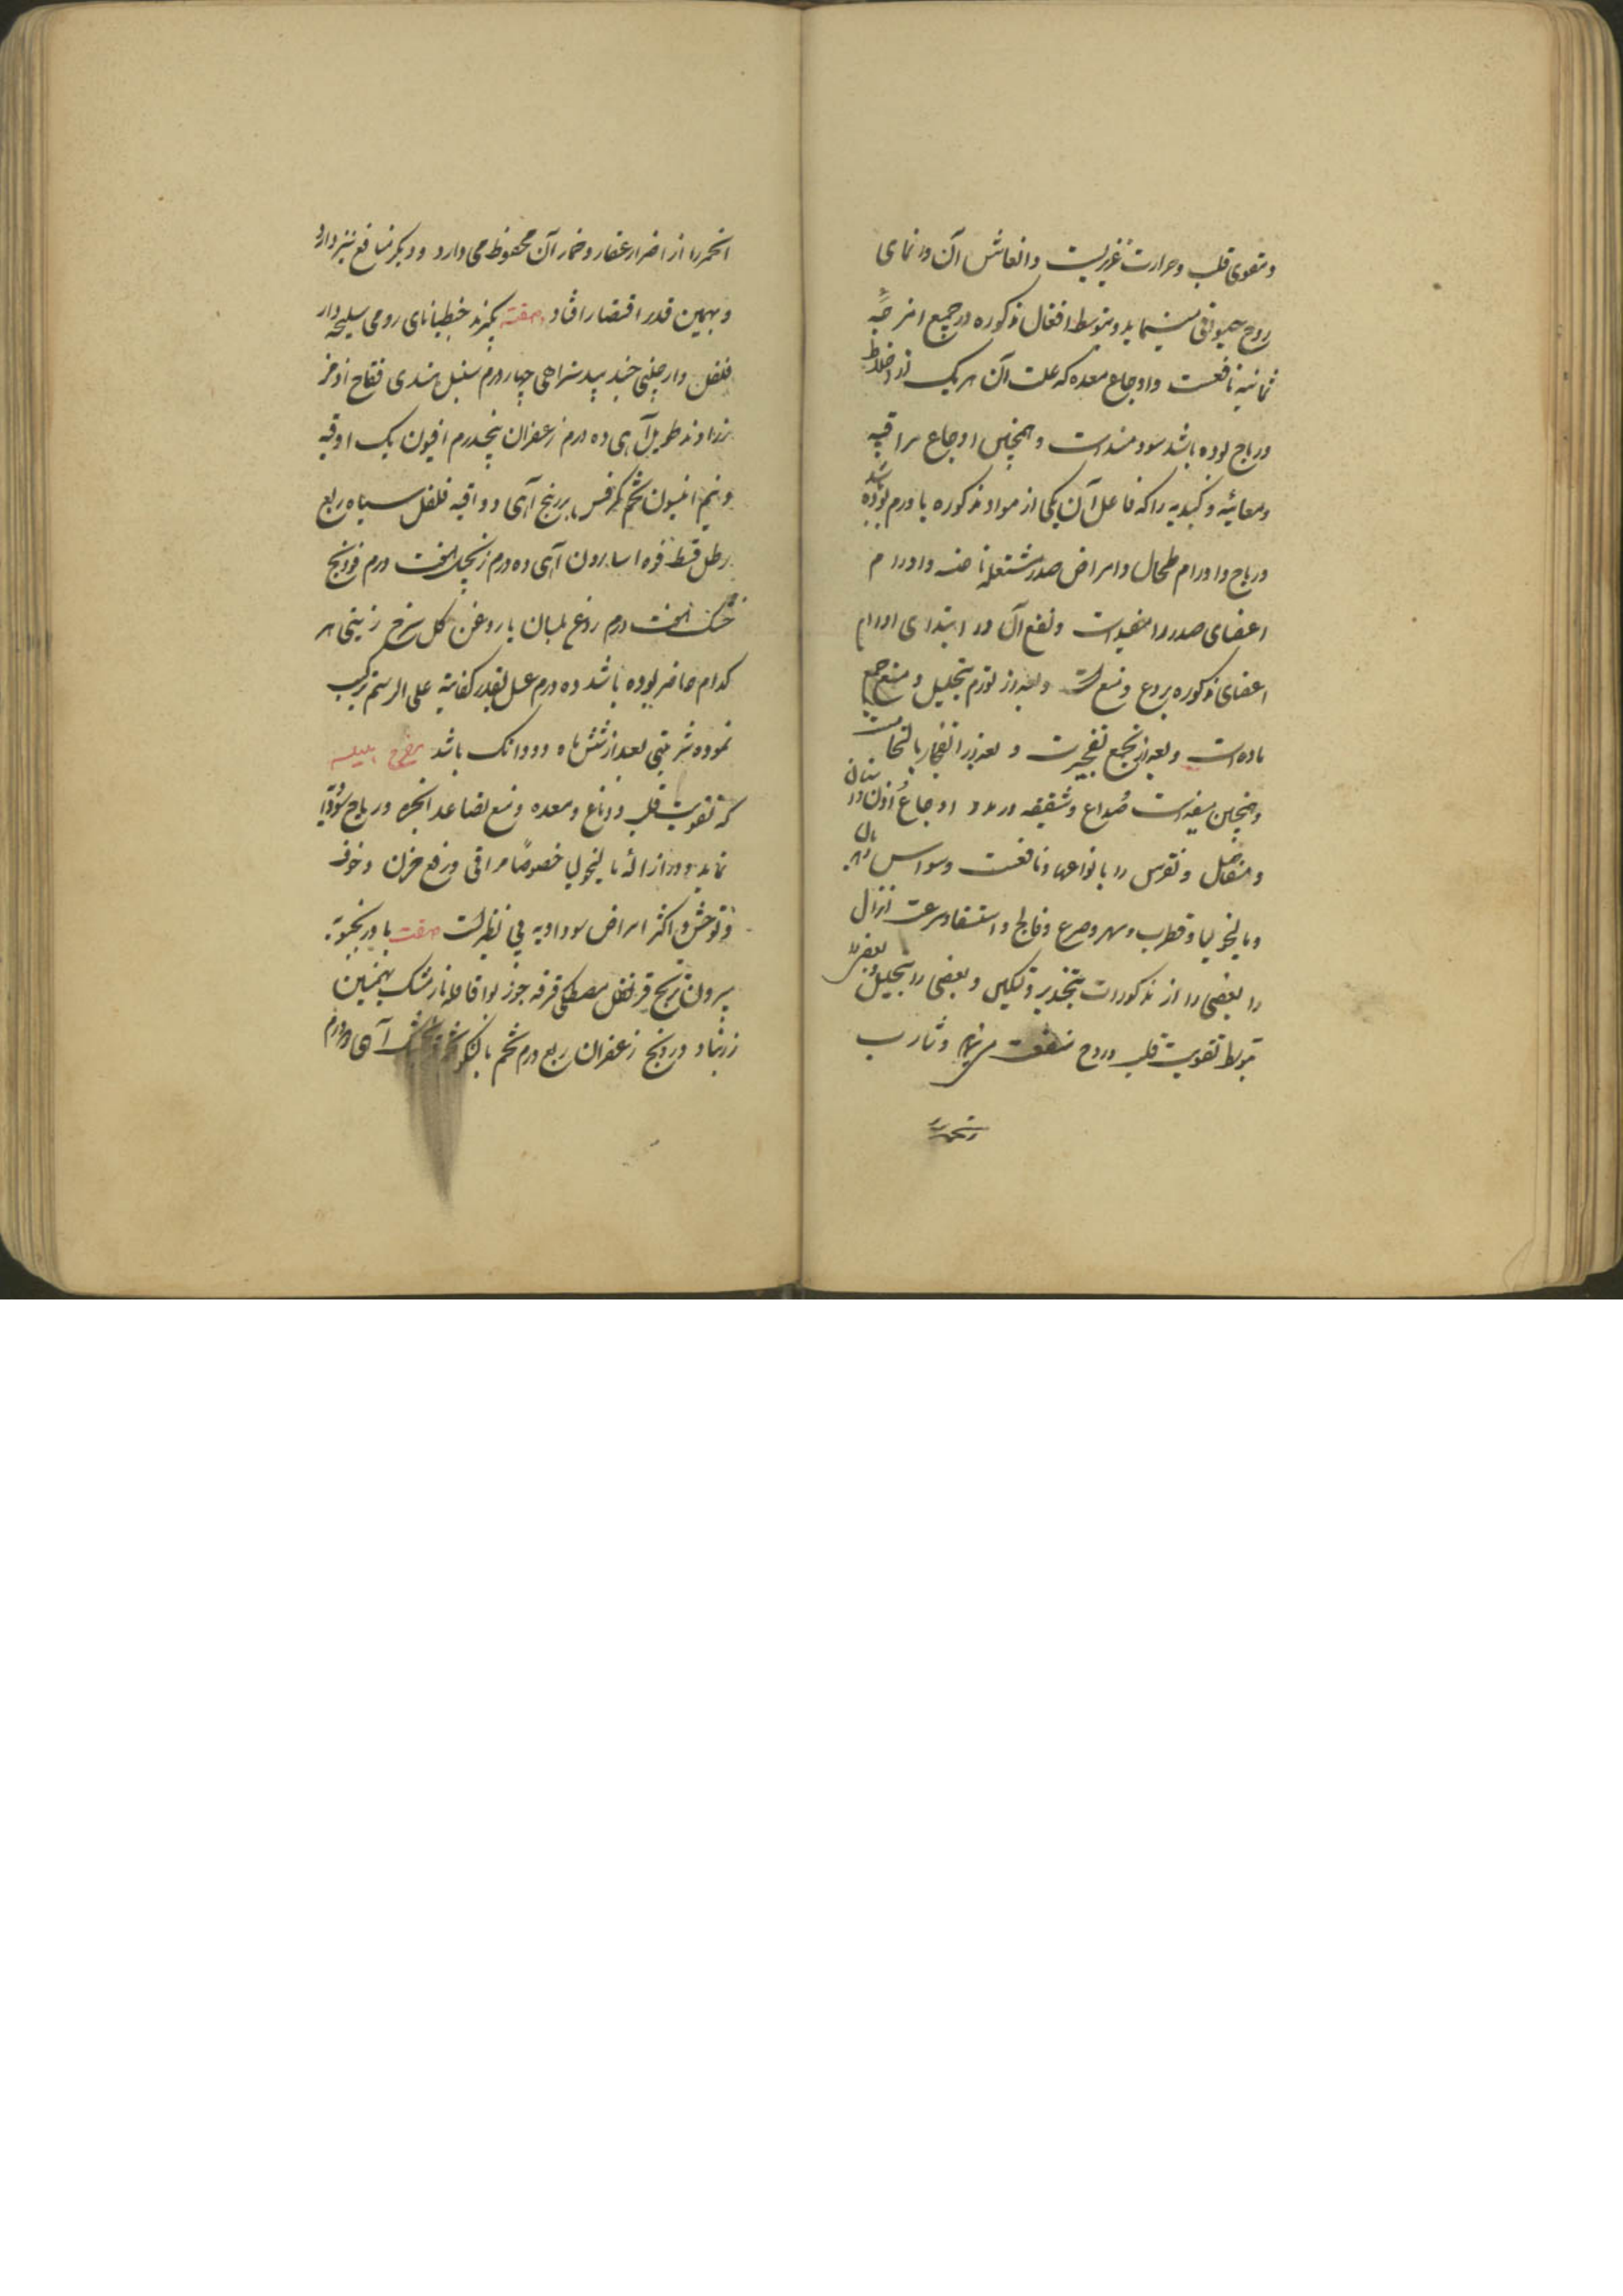 و مقوی قلب و حرارت غریزیست و انعاش آن و انمای
روح حیوانی مینماید و بتوسط افعال مذکوره در جمیع امزجه
ثمانیه نافعست و اوجاع معده که علت آن هر یک از اخلاط
و ریاح بوده باشد سودمند است و همچنین اوجاع مراقیه
و معائیه و کبدیه را که فاعل آن یکی از مواد مذکوره یا ورم بوده باشد
و ریاح و اورام طحال و امراض صدر و اورام
اعضای صدر را مفید است و نفع آن در ابتدای اورام
اعضای مذکوره بردع و منع است و بعد از تورم بتحلیل و منع جمع
ماده است و بعد از جمع بتفجیر است و بعد از انفجار بالتحام است
و همچنین مفید است صداع و شقیقه و درد و اوجاع اذن و اسنان
و مفاصل و نقرس را بانواعها و نافعست وسواس را
و مالیخولیا و قطرب و سهر و صرع و فالج و استسقا و سرعت انزال
را بعضی را از مذکورات بتخدیر و تسکین و بعضی را بتحلیل و بعضی را
بتوسط تقویت قلب و روح منفعت میرساند و شارب
الخمر را
الخمر را از اضرار عقار و خمار آن محفوظ می دارد و دیگر منافع نیز دارد
و بهمین قدر اقتصار افتاد صفته بگیرند جنطیانای رومی سلیخه دار
فلفل دارچینی جند بیدستر اهی چهار درم سنبل هندی فقاح اذخر
زراوند طویل آهی ده درم زعفران پنجدرم افیون یک اوقیه
و نیم انیسون تخم کرفس برنج آهی دو اوقیه فلفل سیاه ربع
رطل قسط فوه اسارون آهی ده درم زنجبیل هفت درم فودنج
خشک هفت درم روغن بلسان یا روغن گل سرخ زیتی هر
کدام حاضر بوده باشد ده درم عسل بقدر کفایه علی الرسم ترکیب
نموده شربتی بعد از شش ماه دو دانک باشد مفرح
که تقویت قلب و دماغ و معده و منع تصاعد ابخره و ریاح سوداوی
نماید و در ازاله مالیخولیا خصوصا مراقی و رفع حزن و خوف
و توحش و اکثر امراض سوداویه بی نظیر است صفت بادرنجبویه
پوست اترج قرنفل مصطکی قرفه جوز بوا قاقله نارمشک بهمنین
زرنباد درونج زعفران ربع درم تخم بالنکو آهی درم